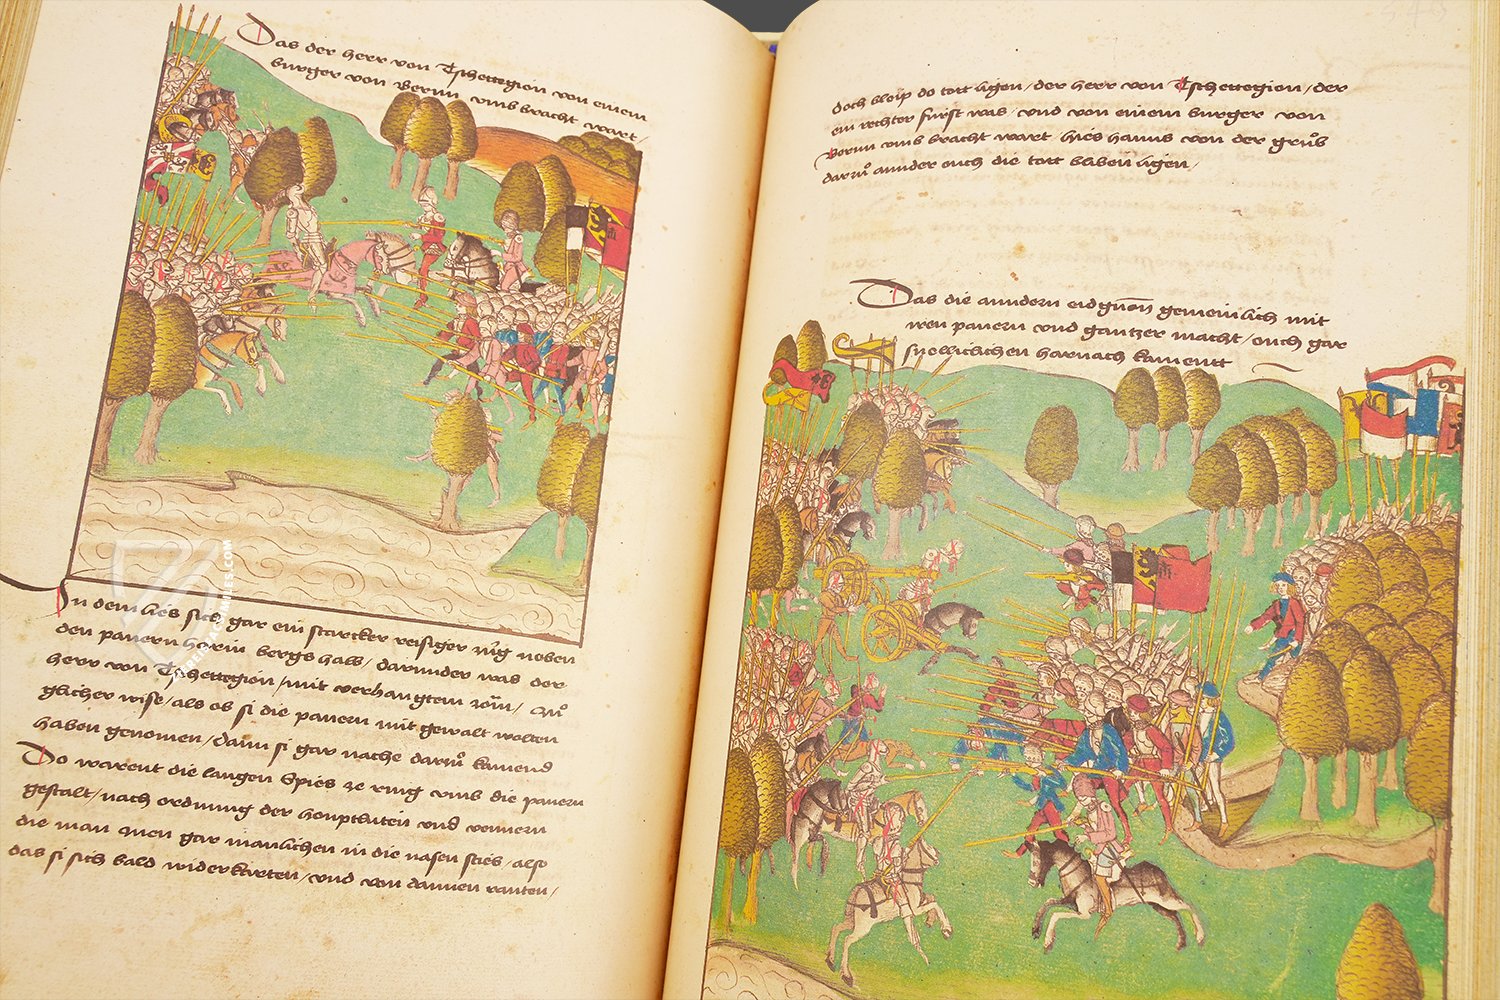 Das der herr von Tschettegion von einem
burger von Bernn umb bracht wart /
In dem hies sich gar ein starcker reisiger zug neben
den panern herin bergs halb / darunder was der
herr von Tschettegion / mit verhangtem zoum /
glicher wise / als ob si die panern mit gewalt wolten
haben genomen / dann si gar nache darzu kamend
Do warent die langen spies ze ring umb die panern
gestalt / nach ordnung der houptluten und vennern
die man inen gar manlichen in die nasen sties / also
das si sich bald widerkarten / und von dannen ranten /
doch bleip do tott ligen / der herr von Tschettegion / der
ein rechter fürst was / und von einem burger von
Bernn umb bracht wart / hies hanns von der grub
darzu annder ouch die tott bliben ligen /
Das die anndern eidgnon gemeinlich mit
iren panern und gantzer macht / ouch gar
snellichichen harnach kament